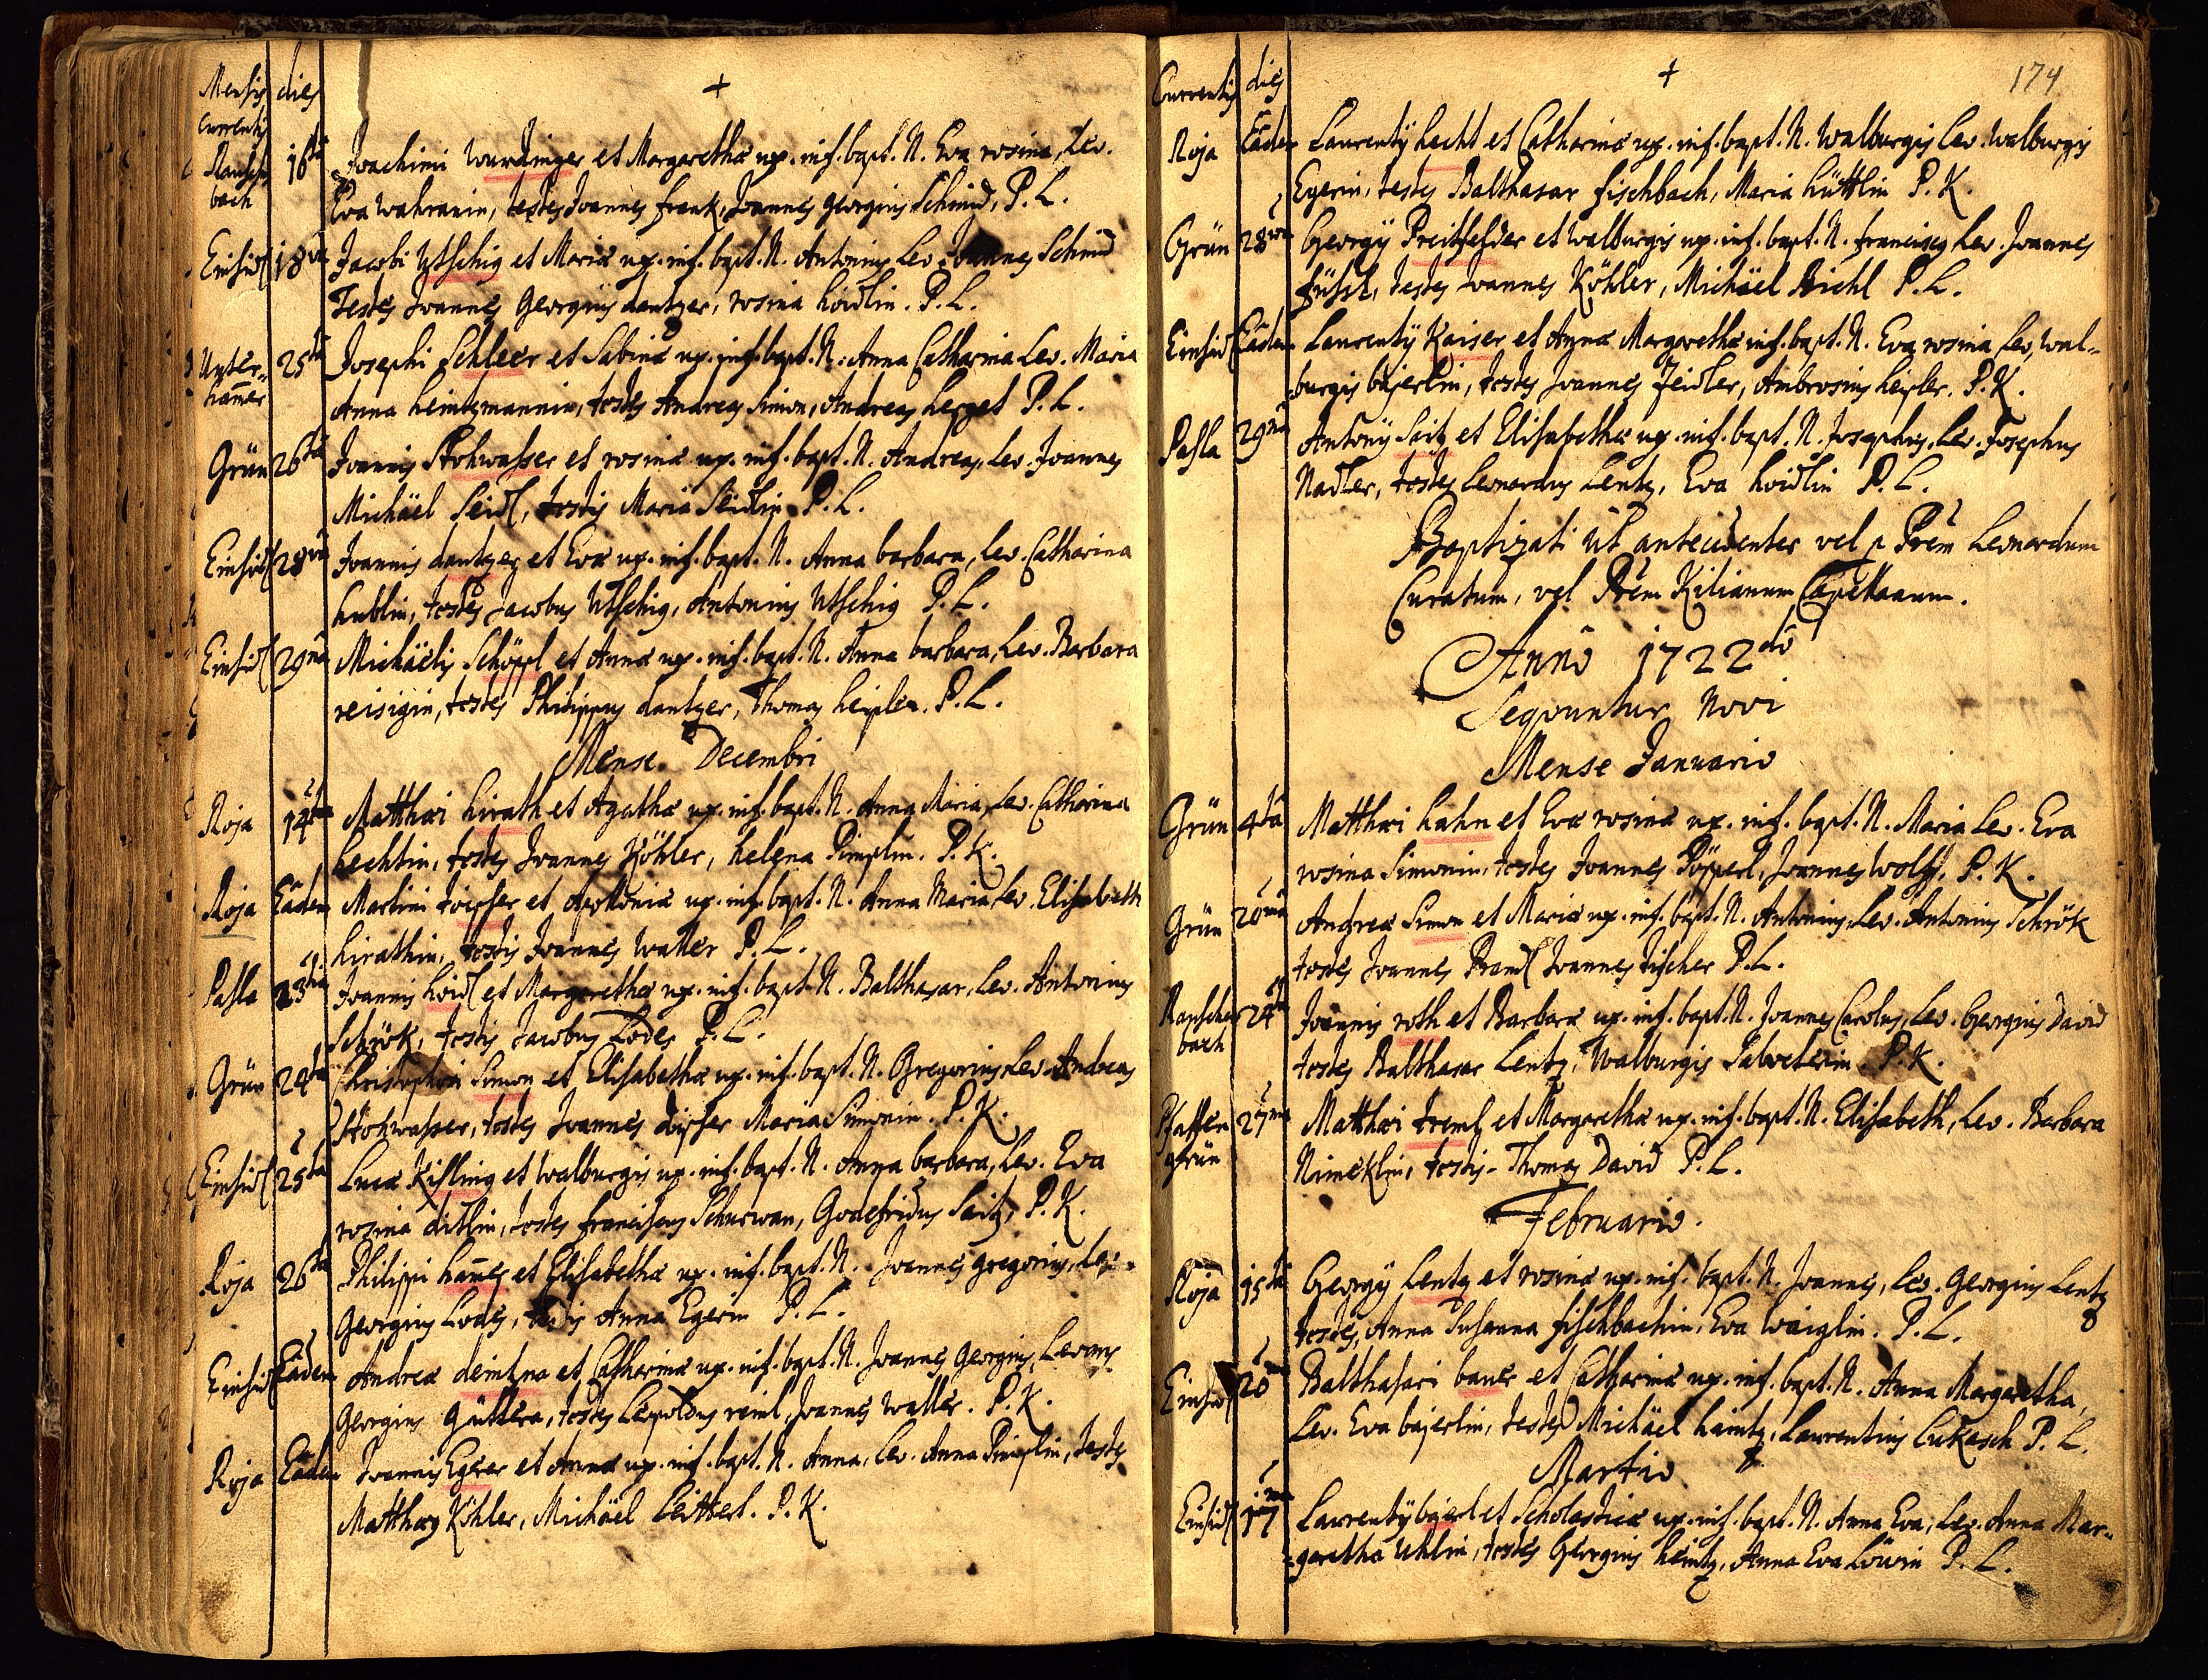 Mensis dies +
currentis
Rauschenbach 16ta Joachimi Wurdinger et Margarethæ ux. inf. bapt. N. Eva rosina, Lev.
Eva Wahranin, testes Joannes frank, Joannes georgius Schmid, P. L.
Einsidl 18va Jacobi Utschig et Mariæ ux. inf. bapt. N. Antonius Lev. Joannes Schmid
Testes Joannes Georgius dantzer, rosina hoidlin. P. L.
Unter= hamer 25ta Josephi Schleer et Sabinæ ux. inf. bapt. N. Anna Catharina Lev. Maria
Anna heintzmannin, testes Andreas Simon, Andreas herget P. L.
Grün 26ta Joannis Stohwasser et rosinæ ux. inf. bapt. N. Andreas, Lev. Joannes
Michäel Seidl, testis Maria Seidlin P. L.
Einsidl 28va Joannis dantzer et Evæ ux. inf. bapt. N. Anna barbara, Lev. Catharina
hublin, testes Jacobus Utschig, Antonius Utschig P. L.
Einsidl 29na Michäelis Schöppl et Annæ ux. inf. bapt. N. Anna barbara, Lev. Barbara
reisigin, testes Philippus dantzer, Thomas heisler. P. L.
Mense Decembri
Roja 14ta Matthæi hirath et Agathæ ux. inf. bapt. N. Anna Maria, Lev. Catharina
hechtin, testes Joannes Köhler, helena Pimplin. P. K.
Roja Eadem Martini et Apolloniæ ux. inf. bapt. N. Anna Maria Lev. Elisabeth
hirathin, testis Joannes Waller P. L.
Pasla 23tia Joannis hoidl et Margarethæ ux. inf. bapt. N. Balthasar, Lev. Antonius
Schrök, testis Jacobus Lodes P. L.
Grün 24ta Christophori Simon et Elisabethæ ux. inf. bapt. N. Gregorius Lev. Andreas
Stohwasser, testes Joannes Maria Simonin. P. K.
Einsidl 25ta Lucæ Kisling et Walburgis ux. inf. bapt. N. Anna barbara, Lev. Eva
rosina ditlin, testes franciscus Schurwan, Godefridus Saitz, P. K.
Roja 26ta Philippi hames et Elisabethæ ux. inf. bapt. N. Joannes gregorius, Lev.
Georgius Lodes, testis Anna Egerin P. L.
Einsidl Eadem Andreæ et Catharinæ ux. inf. bapt. N. Joannes Georgius, Levans
Georgius Güttera, testes Leopoldus reinl, Joannes Waller. P. K.
Roja Eadem Joannis Egerer et Annæ ux. inf. bapt. N. Anna, Lev. Anna Pimplin, testes
Matthæus Köhler, Michäel Leittert. P. K.
Currentis dies + 174
Roja Eadem Laurentÿ hecht et Catharinæ ux. inf. bapt. N. Walburgis Lev. Walburgis
Egerin, testes Balthasar fischbach, Maria hüttlin P. K.
Grün 28va Georgÿ Preitfelder et Walburgis ux. inf. bapt. N. franciscus Lev. Joannes
füssl, testes Joannes Köhler, Michäel Bichl P. L.
Einsidl Eadem Laurentÿ Kaiser et Annæ Margarethæ inf. bapt. N. Eva rosina Lev. Wal=
burgis bajerlin, testes Joannes Zeidler, Ambrosius heisler. P. K.
Pasla 29na Antonÿ Saitz et Elisabethæ ux. inf. bapt. N. Josephus, Lev. Josephus
Nadler, testes Leonardus Lentz, Eva hoidlin P. L.
Baptizati ut antecedenter vel p Prem Leonardum
Curatum, vel Prem Kilianum Capellanum.
Annô 1722dô
Seqvuntur Novi
Mense Januario
Grün 4ta Matthæi hahn et Evæ rosinæ ux. inf. bapt. N. Maria Lev. Eva
rosina Simonin, testes Joannes Pöpperl, Joannes Wolff. P. K.
Grün 20ma Andreæ Simon et Mariæ ux. inf. bapt. N. Antonius, Lev. Antonius Schrök
testes Joannes Brandl Joannes fischer P. L.
Rauschenbach 24ta Joannis roth et Barbaræ ux. inf. bapt. N. Joannes Carolus, Lev. Georgius David
testes Balthasar Lentz, Walburgis Salveterin. P. K.
Pfaffengrün 27ma Matthæi treml et Margarethæ ux. inf. bapt. N. Elisabeth, Lev. Barbara
Nimeklin, testis Thomas David P. L.
Februario.
Roja 15ta Georgÿ Lentz et rosinæ ux. inf. bapt. N. Joannes, Lev. Georgius Lentz
testes, Anna Susanna fischbachin, Eva Waiglin. P. L.
Einsidl 20 Balthasari bauer et Catharinæ ux. inf. bapt. N. Anna Margaretha,
Lev. Eva bajerlin, testes Michäel haintz, Laurentius Lukasch P. L.
Martio
Einsidl 17ma Laurentÿ bajerl et Scholasticæ ux. inf. bapt. N. Anna Eva, Lev. Anna Mar=
garetha Uhlin, testes Georgius heintz, Anna Eva Löwin P. L.